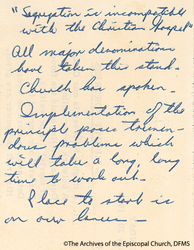 "Segregation is incompatible
with the Christian Gospel"
All major denominations
have taken this stand.
Church has spoken.
Implementation of the
principle poses tremen-
dous problems which
will take a long, long
time to work out.
Place to start is
on our
©The Archives of the Episcopal Church, DFMS